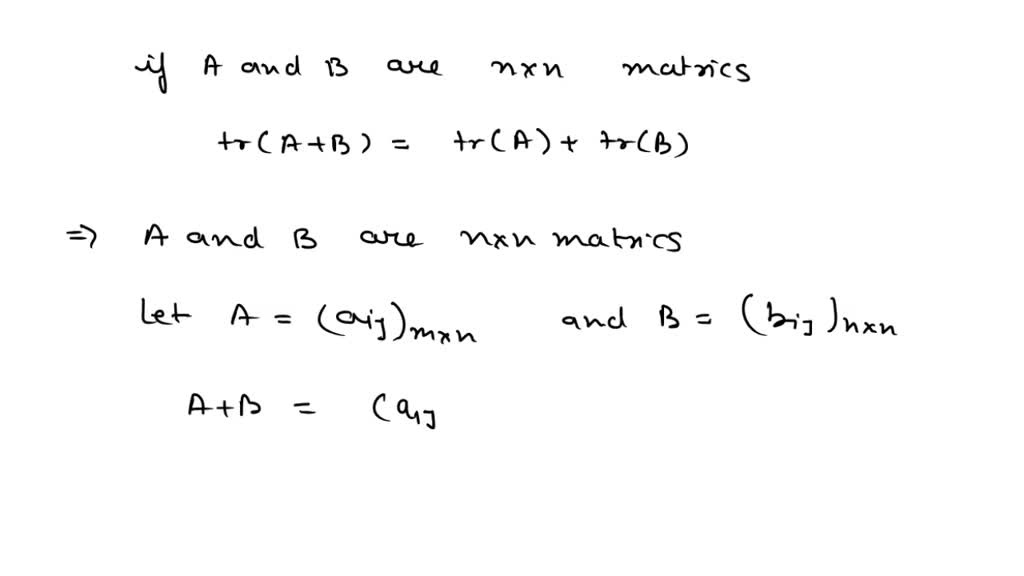 if A and B are nxn matrics
tr(A+B) = tr(A) + tr(B)
⇒ A and B are nxn matrics
Let A = (aij)mxn and B = (bij)nxn
A+B = (aij